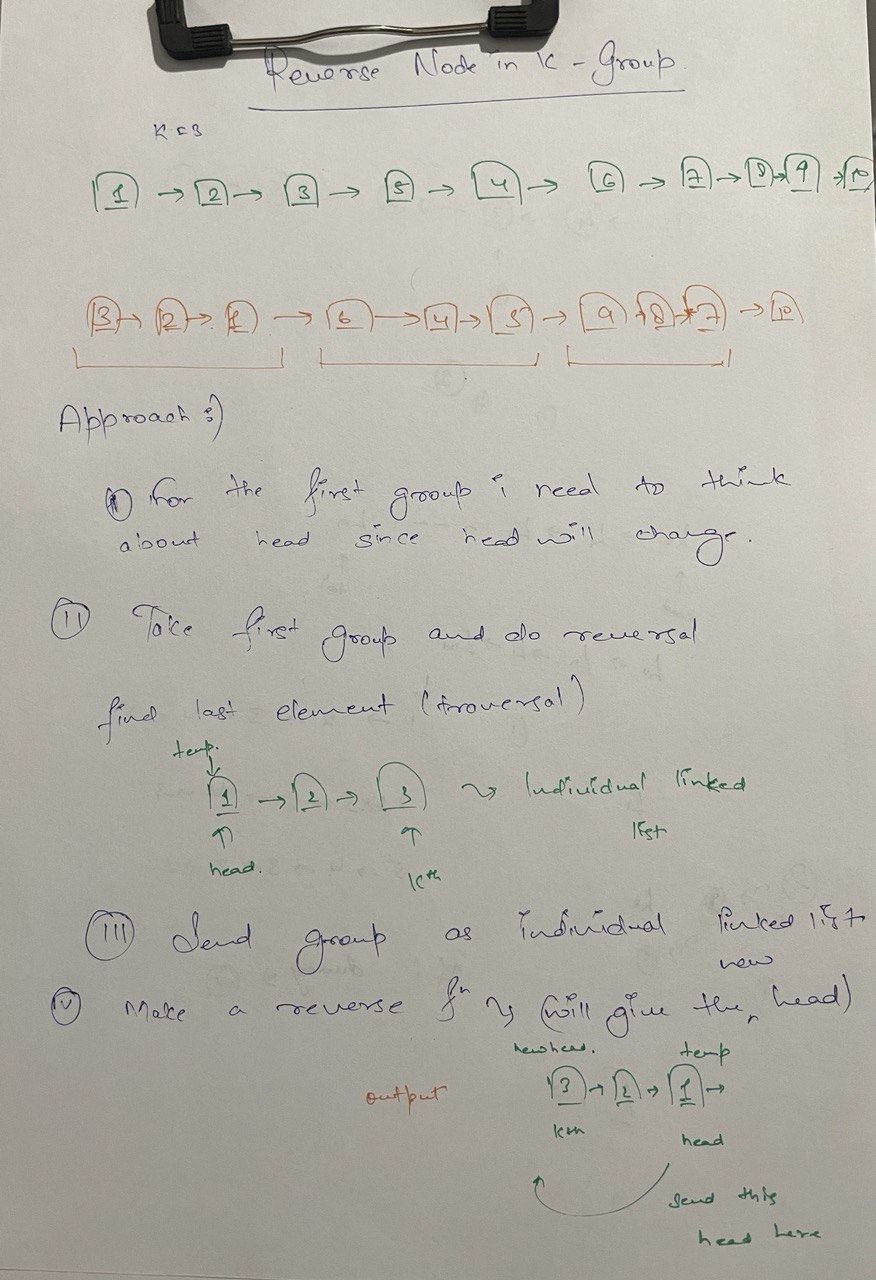 Reverse Node in K - Group.
K = 3
1 → 2 → 3 → 5 → 4 → 6 → 7 → 8 → 9 → 10
3 → 2 → 1 → 6 → 4 → 5 → 9 → 8 → 7 → 10
Approach :)
(I) For the first group i need to think
about head since head will change.
(II) Take first group and do reversal
find last element (traversal)
temp.
1 → 2 → 3 ~> Individual linked
list
↑ ↑
head. Kth
(III) Send group as individual linked list
new
(IV) Make a reverse fn ~> (will give the ^ head)
newhead. temp
output 3 → 2 → 1 →
Kth head
Send this
head here